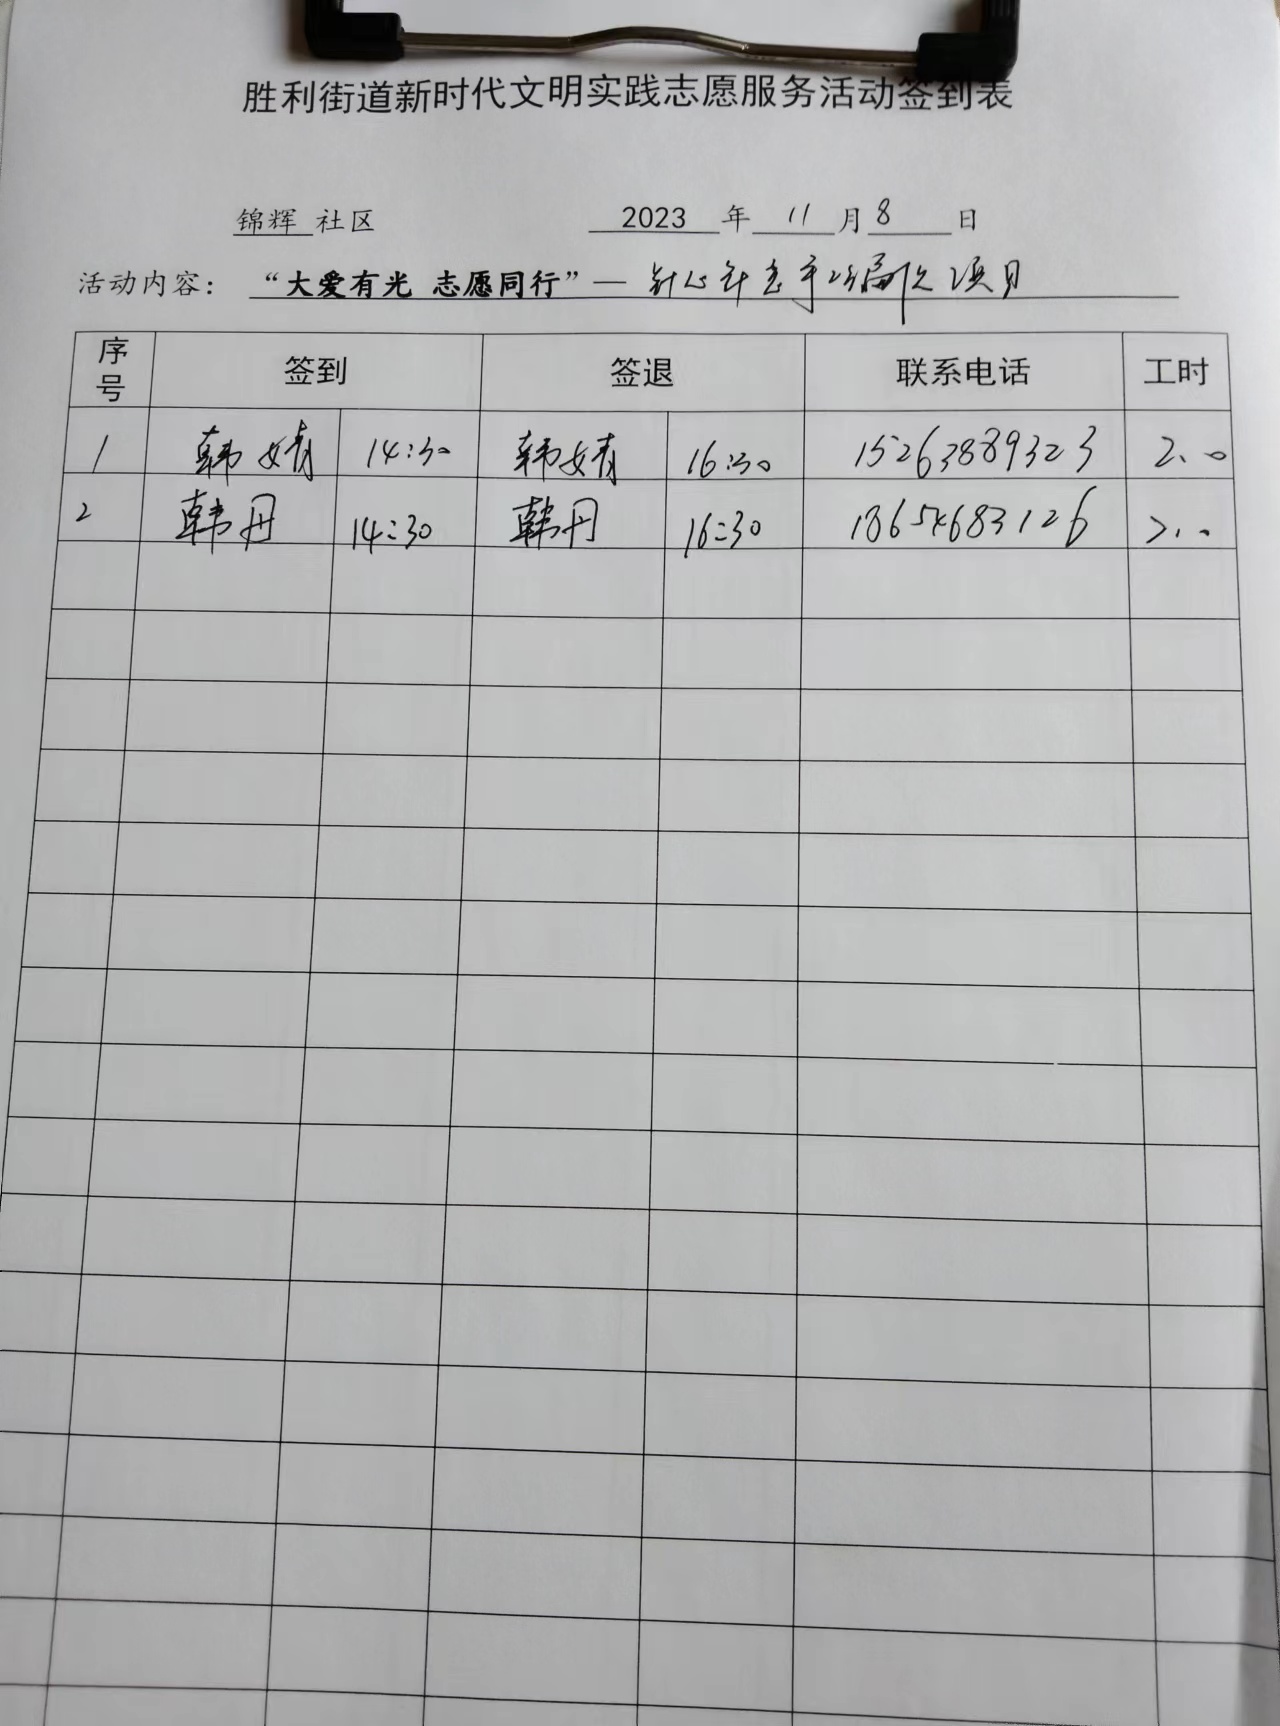 胜利街道新时代文明实践志愿服务活动签到表
锦辉 社区 2023 年 11 月 8 日
活动内容： “大爱有光 志愿同行”— 项目
序号 签到 签退 联系电话 工时
1 韩婧 14:30 韩婧 16:30 15263889323 2.0
2 韩丹 14:30 韩丹 16:30 18654683126 2.0